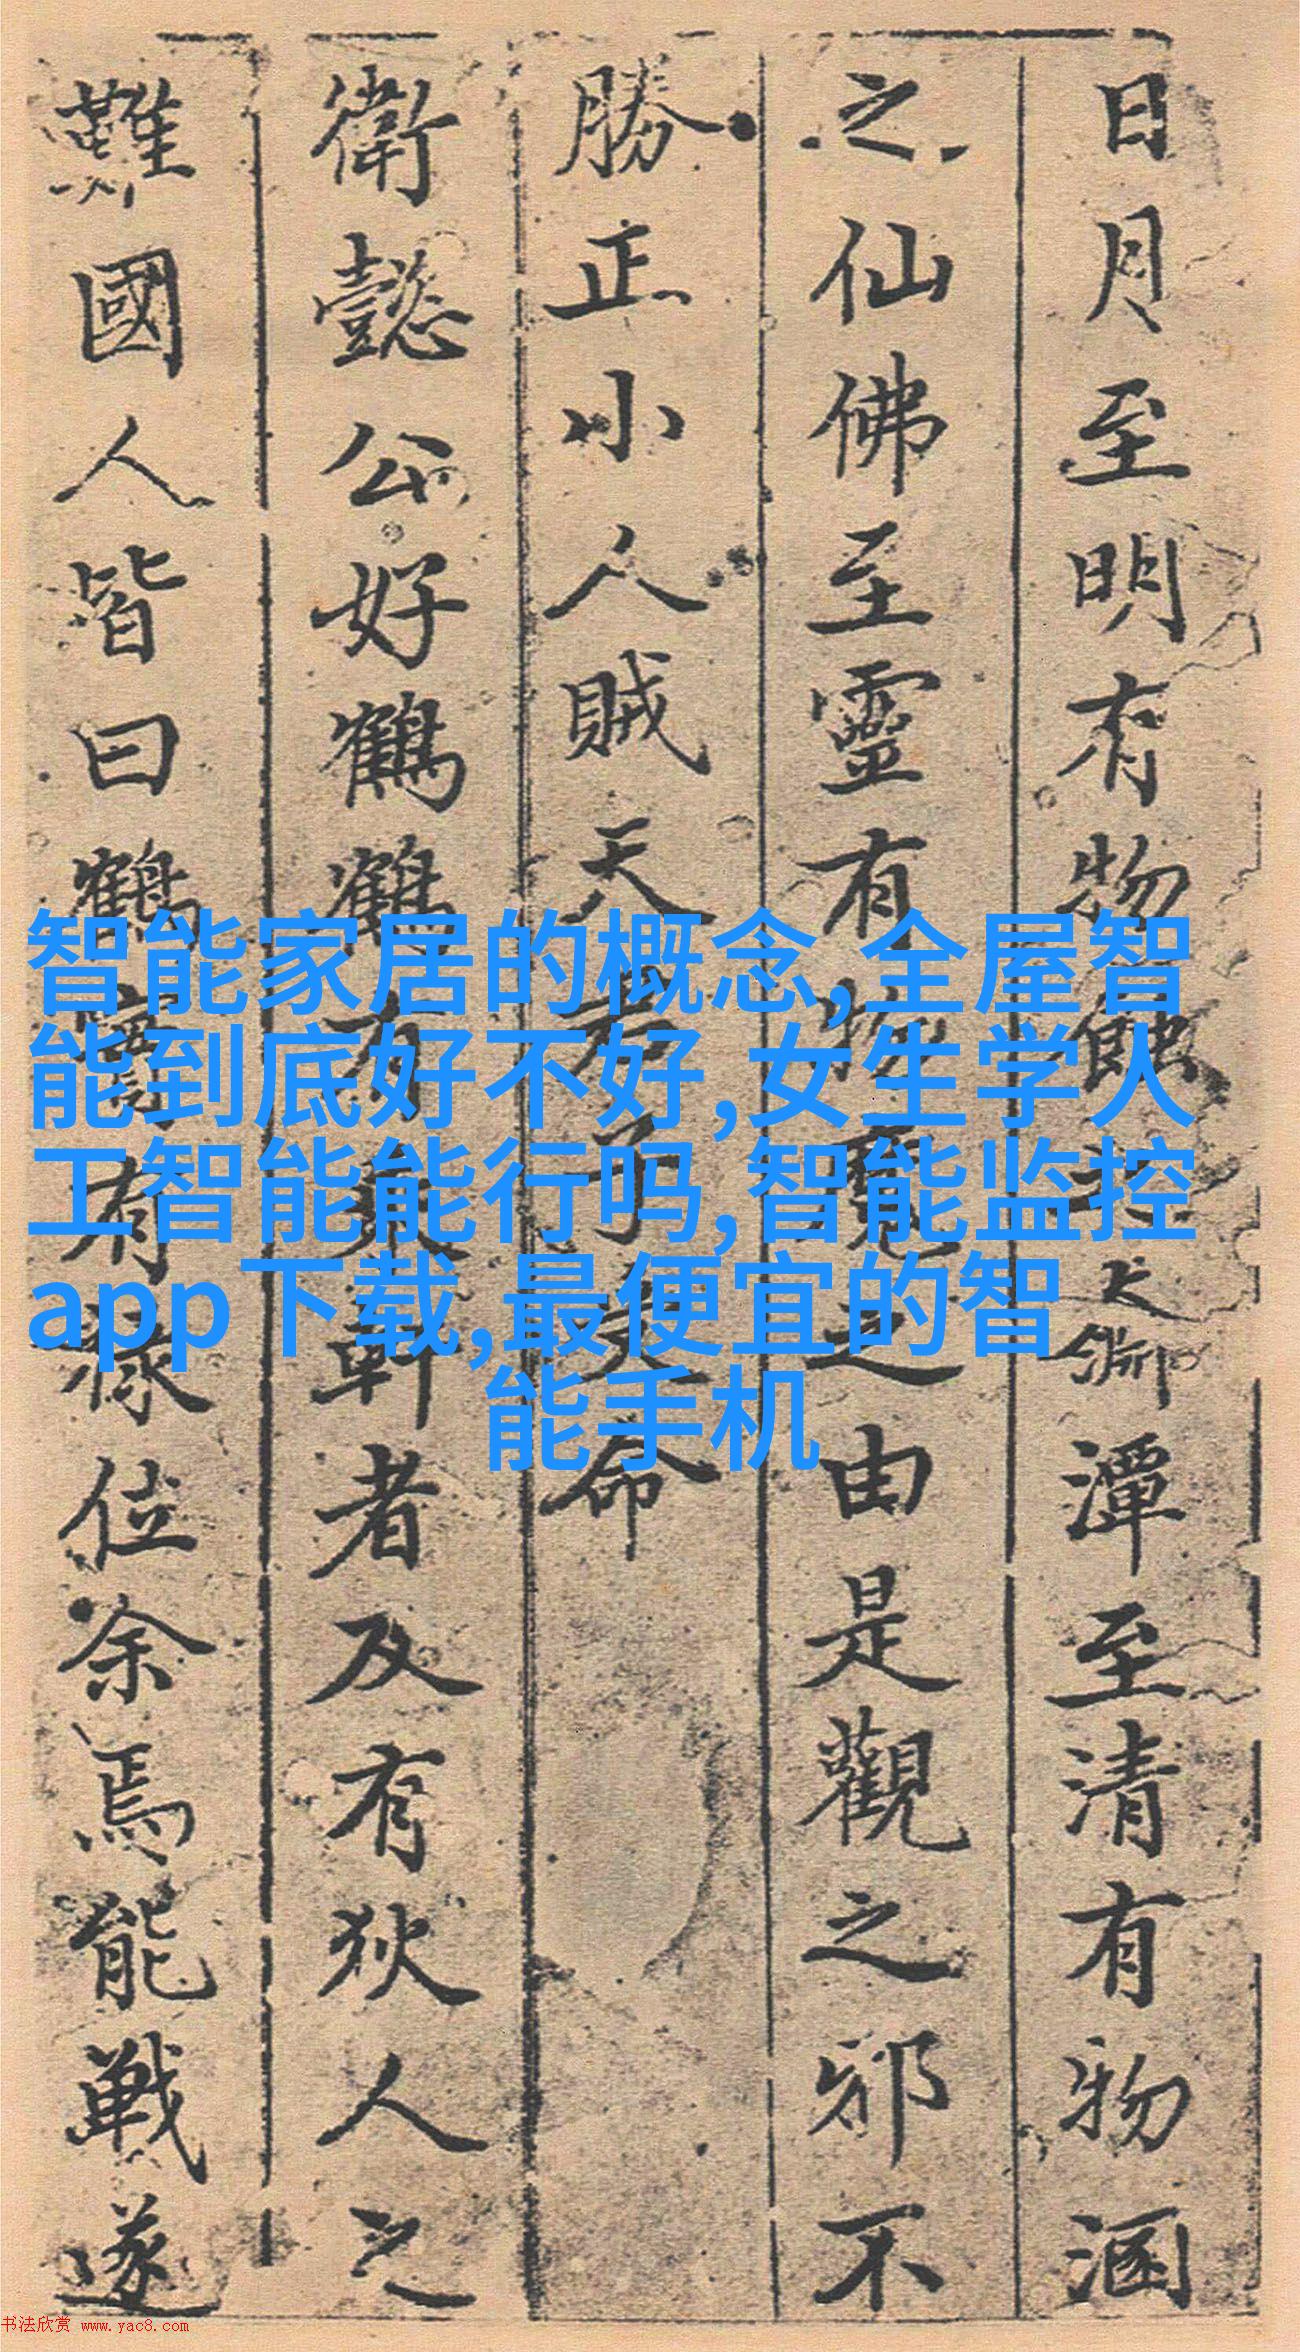 日月至明有物蝕大潭至清有物涵
之仙佛至靈有物之由是觀之邪不
勝正小人賊天君子命
衛懿公好鶴鶴有乘軒者及有狄人之
難國人皆曰鶴實有祿位余焉能戰遂
智能家居的概念,全屋智
能到底好不好,女生学人
工智能能行吗,智能监控
app下载,最便宜的智
能手机
书法欣赏 www.yac8.com